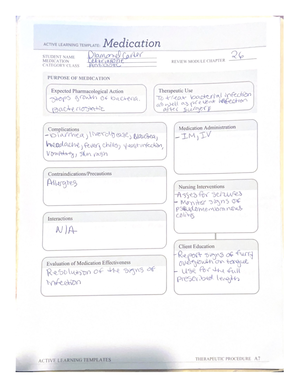 ACTIVE LEARNING TEMPLATE: Medication
STUDENT NAME Diamond Carter
MEDICATION
REVIEW MODULE CHAPTER 26
CATEGORY CLASS Antibiotic
PURPOSE OF MEDICATION
Expected Pharmacological Action
Stops growth of bacteria
bacteriostatic
Therapeutic Use
To treat bacterial infection
as well as prevent infection
after surgery
Complications
- Diarrhea, liver disease,
headache, fever, chills, yeast infection,
vomiting, skin rash
Medication Administration
- IM, IV
Contraindications/Precautions
Allergies
Nursing Interventions
- Assess for seizures
- Monitor signs of
pseudomembranous
colitis
Interactions
N/A
Client Education
- Report signs of furry
overgrowth on tongue
- Use for the full
prescribed length
Evaluation of Medication Effectiveness
Resolution of the signs of
infection
ACTIVE LEARNING TEMPLATES
THERAPEUTIC PROCEDURE A7